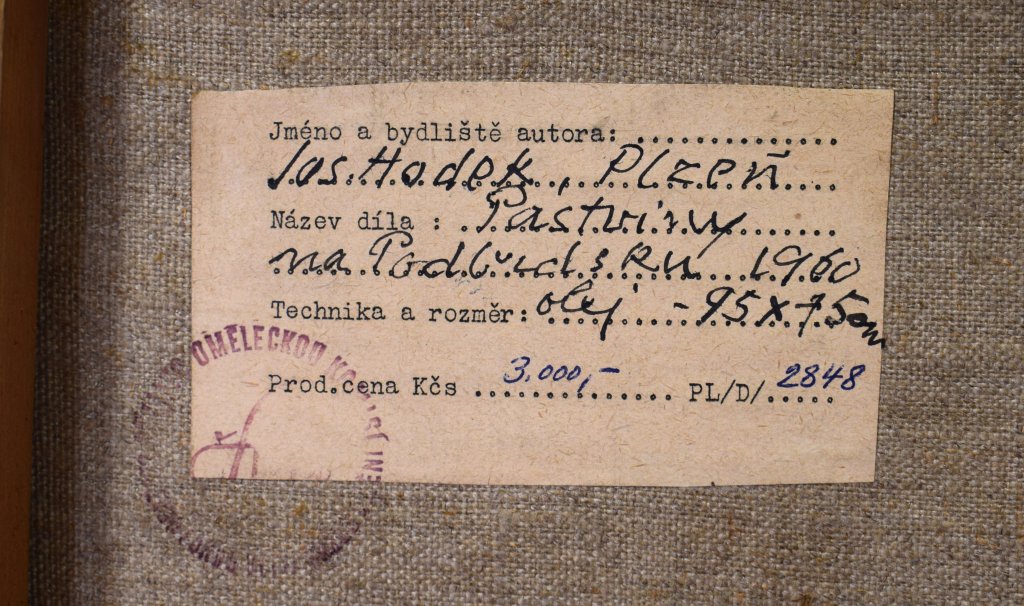 Jméno a bydliště autora: ...............
Jos. Hodek, Plzeň
Název díla : Pastviny
na Podbrdsku 1960
Technika a rozměr: olej - 95 x 75 cm
Prod.cena Kčs 3.000,- PL/D/ 2848
UMĚLECKOU